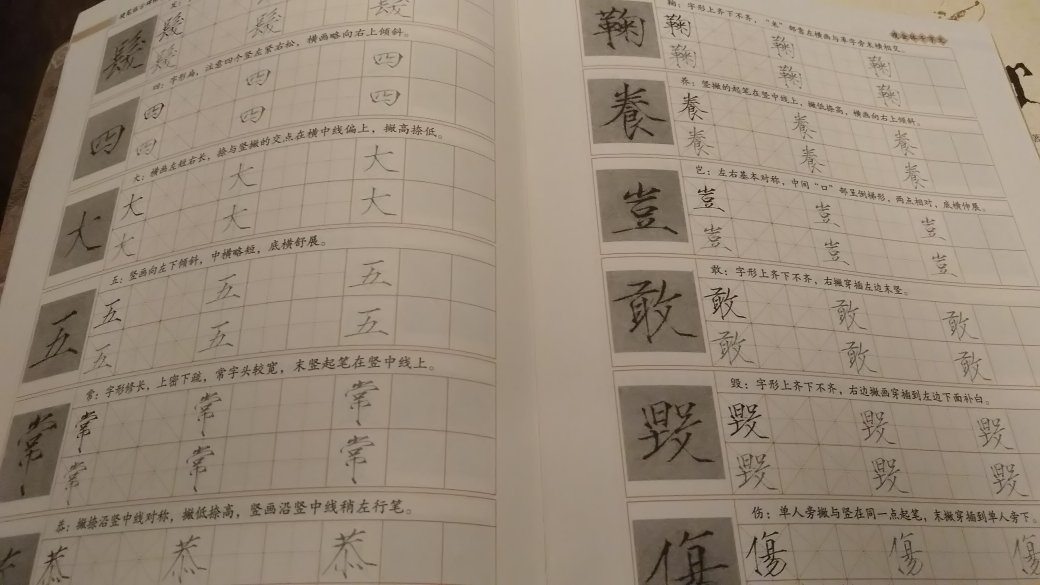 髮
髮 髮 髮
髮
四：字形扁，注意四个竖左紧右松，横画略向右上倾斜。
四
四 四 四
四 四 四
大：横画左短右长，捺与竖撇的交点在横中线偏上，撇高捺低。
大
大 大 大
大 大 大
五：竖画向左下倾斜，中横略短，底横舒展。
五
五 五 五
五 五 五
常：字形修长，上密下疏，常字头较宽，末竖起笔在竖中线上。
常
常 常 常
常 常 常
恭：撇捺沿竖中线对称，撇低捺高，竖画沿竖中线稍左行笔。
恭 恭 恭
鞠：字形上齐下不齐，“米”部靠左横画与革字旁末横相交。
鞠
鞠 鞠
鞠 鞠 鞠
养：竖撇的起笔在竖中线上，撇低捺高，横画向右上倾斜。
養
養 養 養
養 養 養
岂：左右基本对称，中间“口”部呈倒梯形，两点相对，底横伸展。
豈
豈 豈 豈
豈 豈 豈
敢：字形上齐下不齐，右撇穿插左边末竖。
敢
敢 敢 敢
敢 敢 敢
毁：字形上齐下不齐，右边撇画穿插到左边下面补白。
毀
毀 毀 毀
毀 毀 毀
伤：单人旁撇与竖在同一点起笔，末撇穿插到单人旁下。
傷
傷 傷 傷